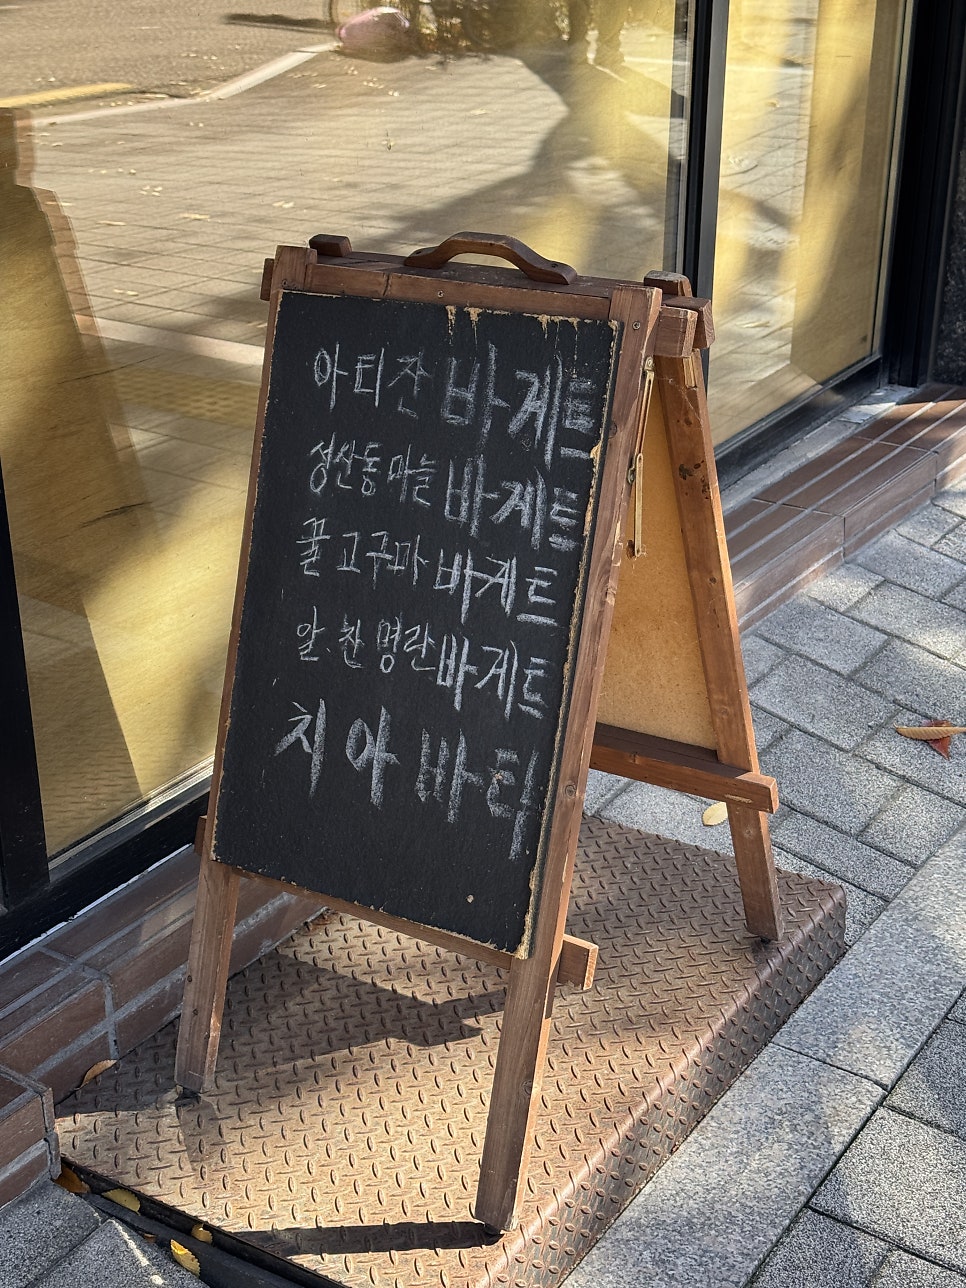 아티잔 바게트
성산동 마늘 바게트
꿀고구마 바게트
알.찬 명란 바게트
치아바타